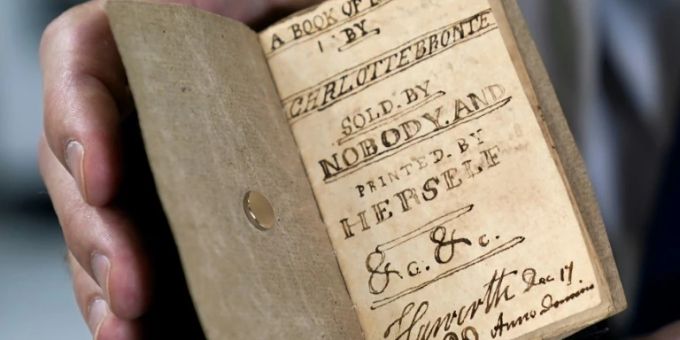 A BOOK OF
BY
CHRLOTTE BRONTE
SOLD. BY
NOBODY. AND
PRINTED. BY
HERSELF
&c. &c.
Haworth Dec 17
Anno Domini